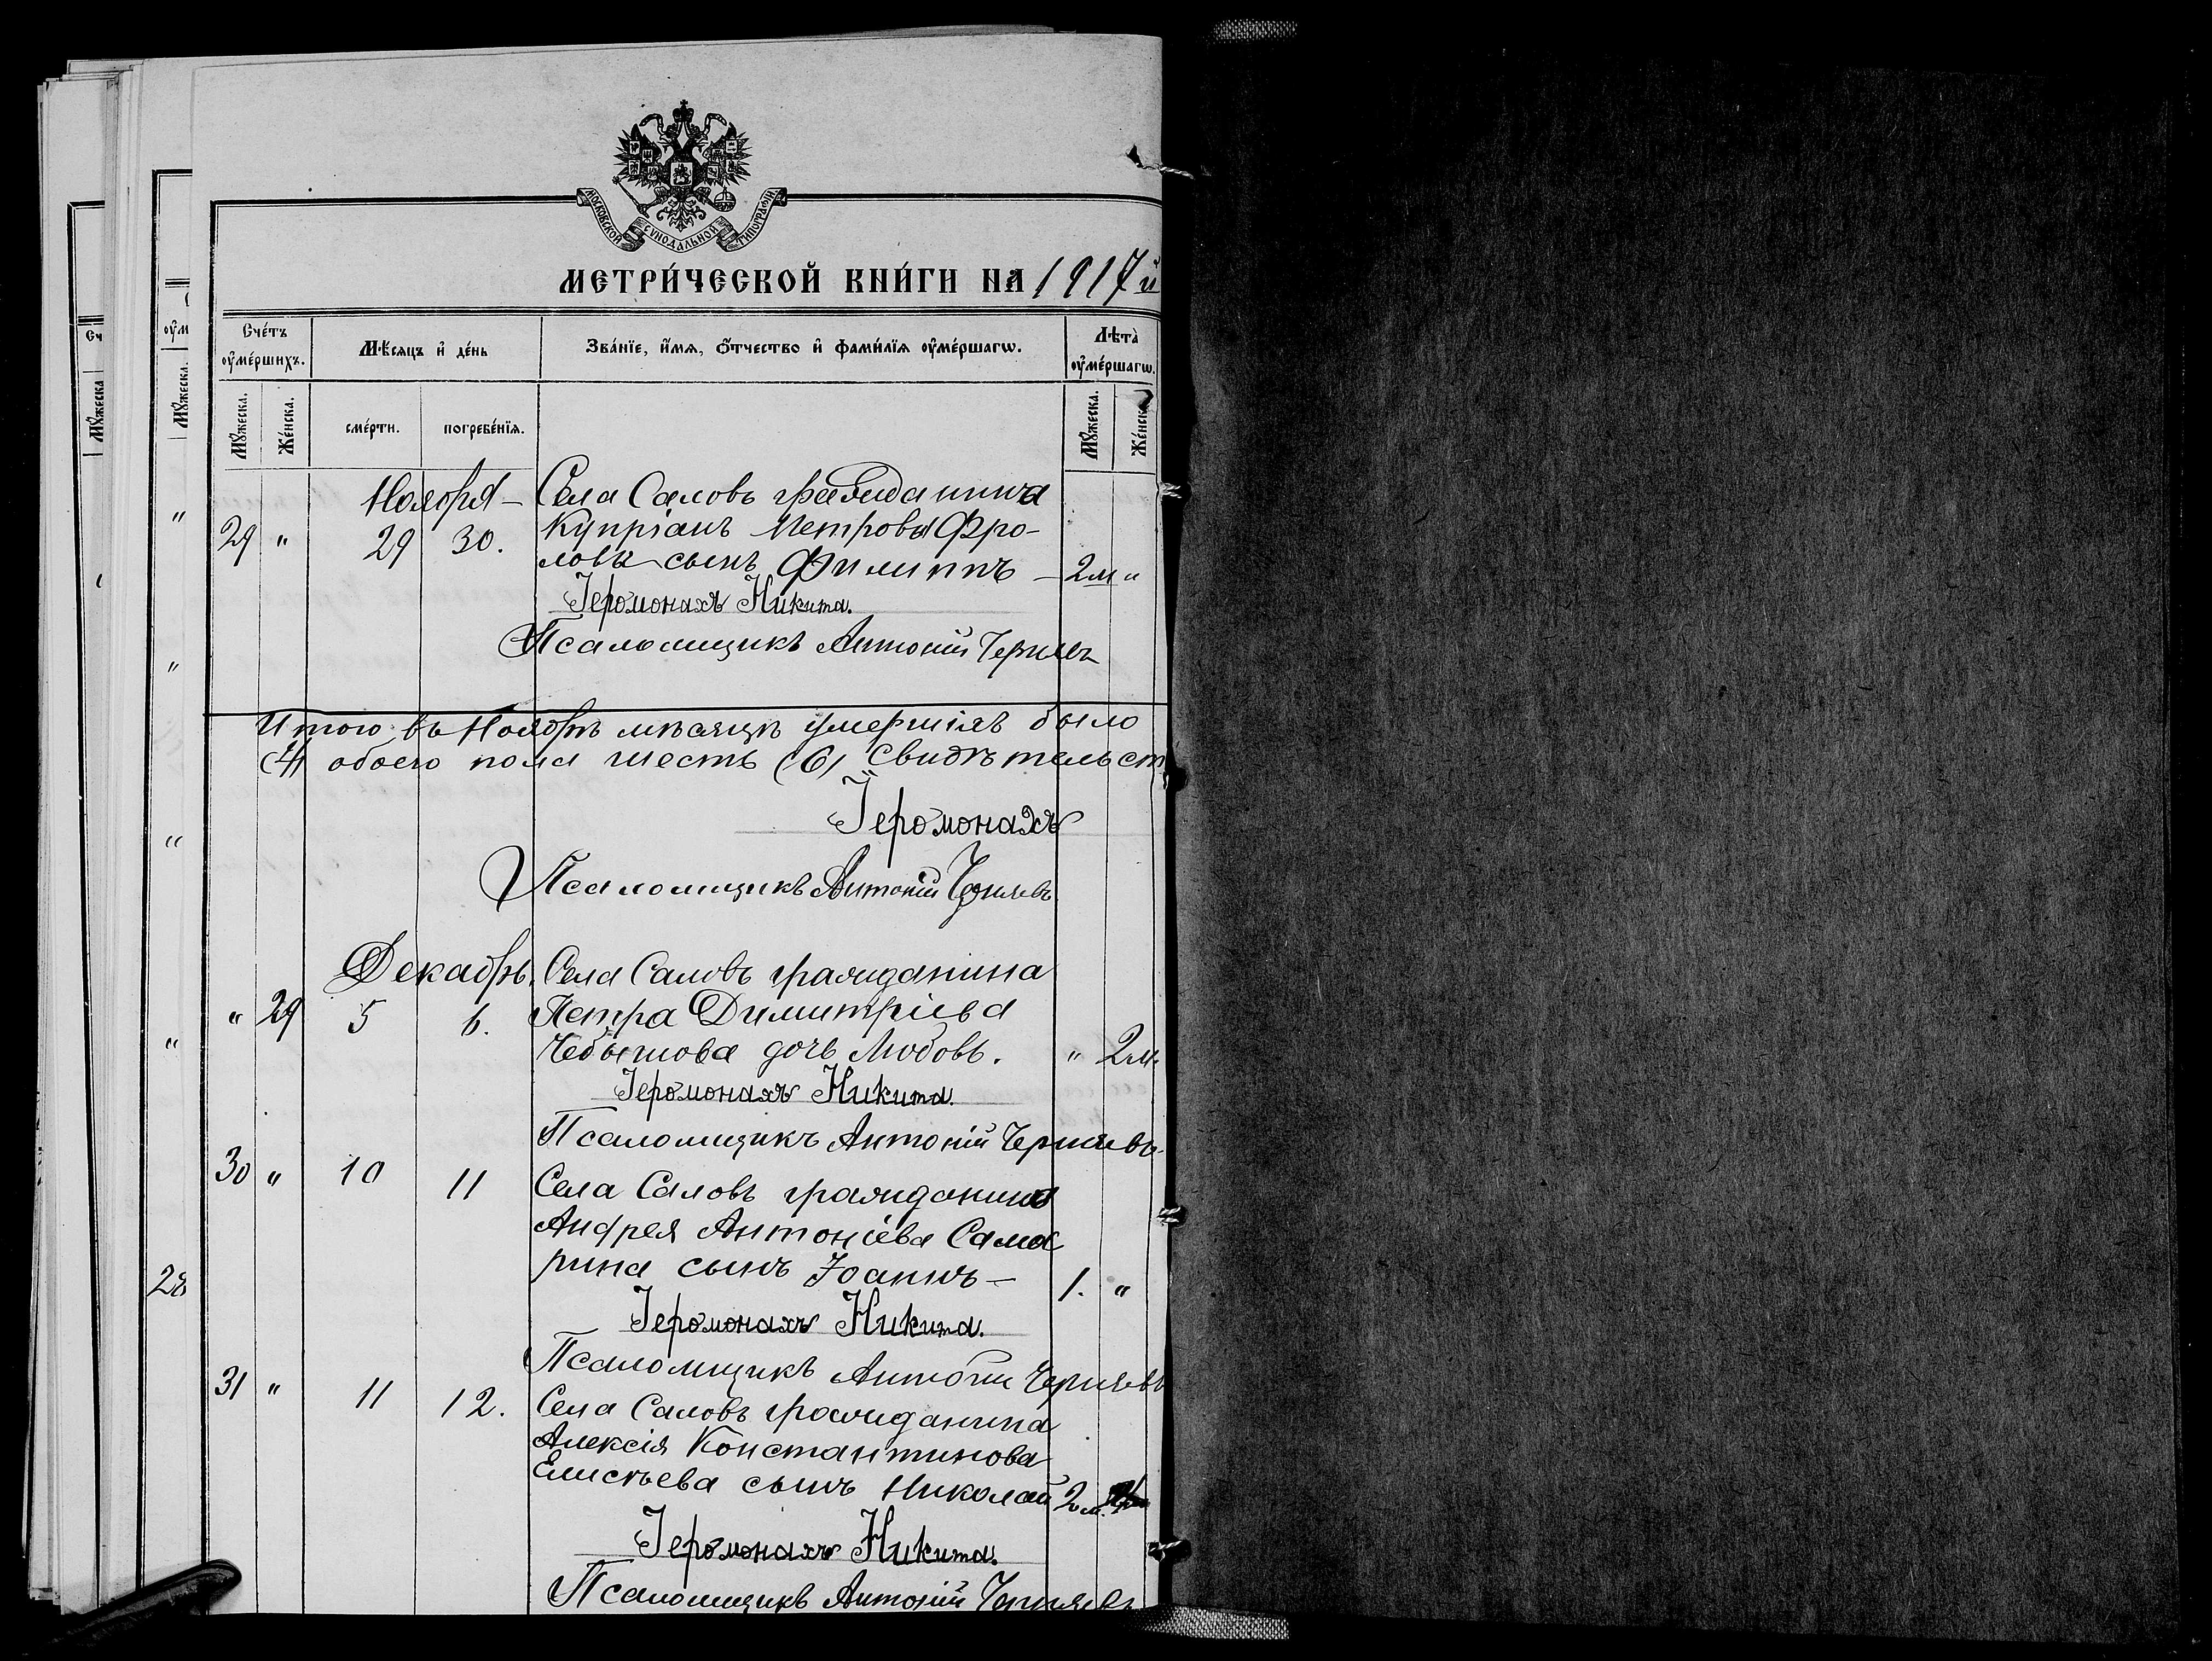 МОСКОВСКОЙ СУНОДАЛЬНОЙ ТИПОГРАФІИ
МЕТРИ́ЧЕСКОЙ КНИ́ГИ НА 1917 й
Сче́тъ оу҆ме́ршихъ.
Мѣ́сяцъ и҆ де́нь
Зва́нїе, и҆́мя, ѻ҆́тчество и҆ фами́лїя оу҆ме́ршагѡ.
Лѣта̀ оу҆ме́ршагѡ.
Мꙋ́жеска. Же́нска. сме́рти. погребе́нїя. Мꙋ́жеска. Же́нска.
Ноября – Села Саловъ гражданина
29 " 29 30. Купріанъ Петрова Фро-
лова сынъ Филиппъ – 2 м "
Іеромонахъ Никита.
Псаломщикъ Антоній Черняевъ
Итого въ Ноябрѣ мѣсяцѣ умершихъ было
(4) обоего пола шесть (6) Свидѣтельст
Іеромонахъ
Псаломщикъ Антоній Черняевъ
Декабрь. Села Саловъ гражданина
" 29 5 6. Петра Димитріева
Чебышова дочь Любовь. " 2 м.
Іеромонахъ Никита.
Псаломщикъ Антоній Черняевъ
30 " 10 11 Села Саловъ гражданина
Андрея Антоніева Сама
рина сынъ Іоаннъ – 1. "
Іеромонахъ Никита.
Псаломщикъ Антоній Черняевъ
31 " 11 12. Села Саловъ гражданина
Алексія Константинова
Елисѣева сынъ Николай 2 м.
Іеромонахъ Никита.
Псаломщикъ Антоній Черняевъ
28